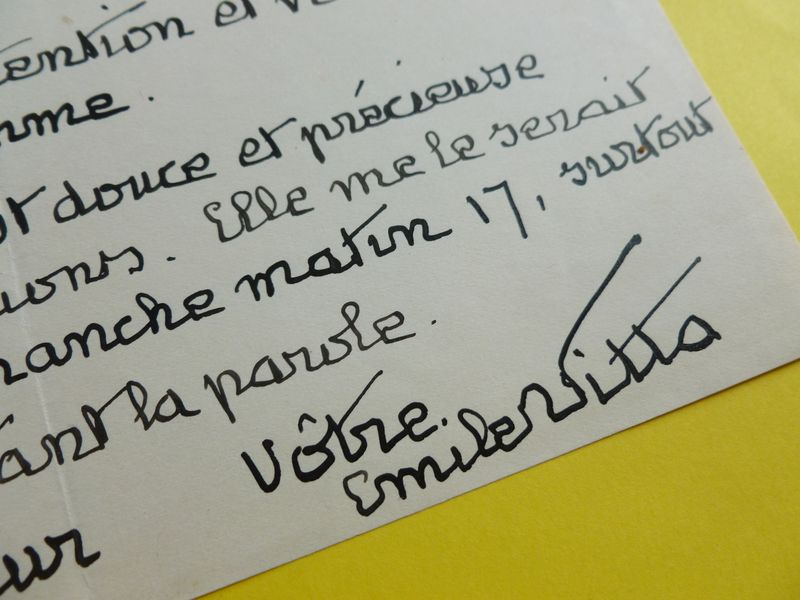 tention et
douce et précieuse
Elle me le serait
manche matin 17, surtout
ant la parole.
Vôtre.
Emile Vitta
ur